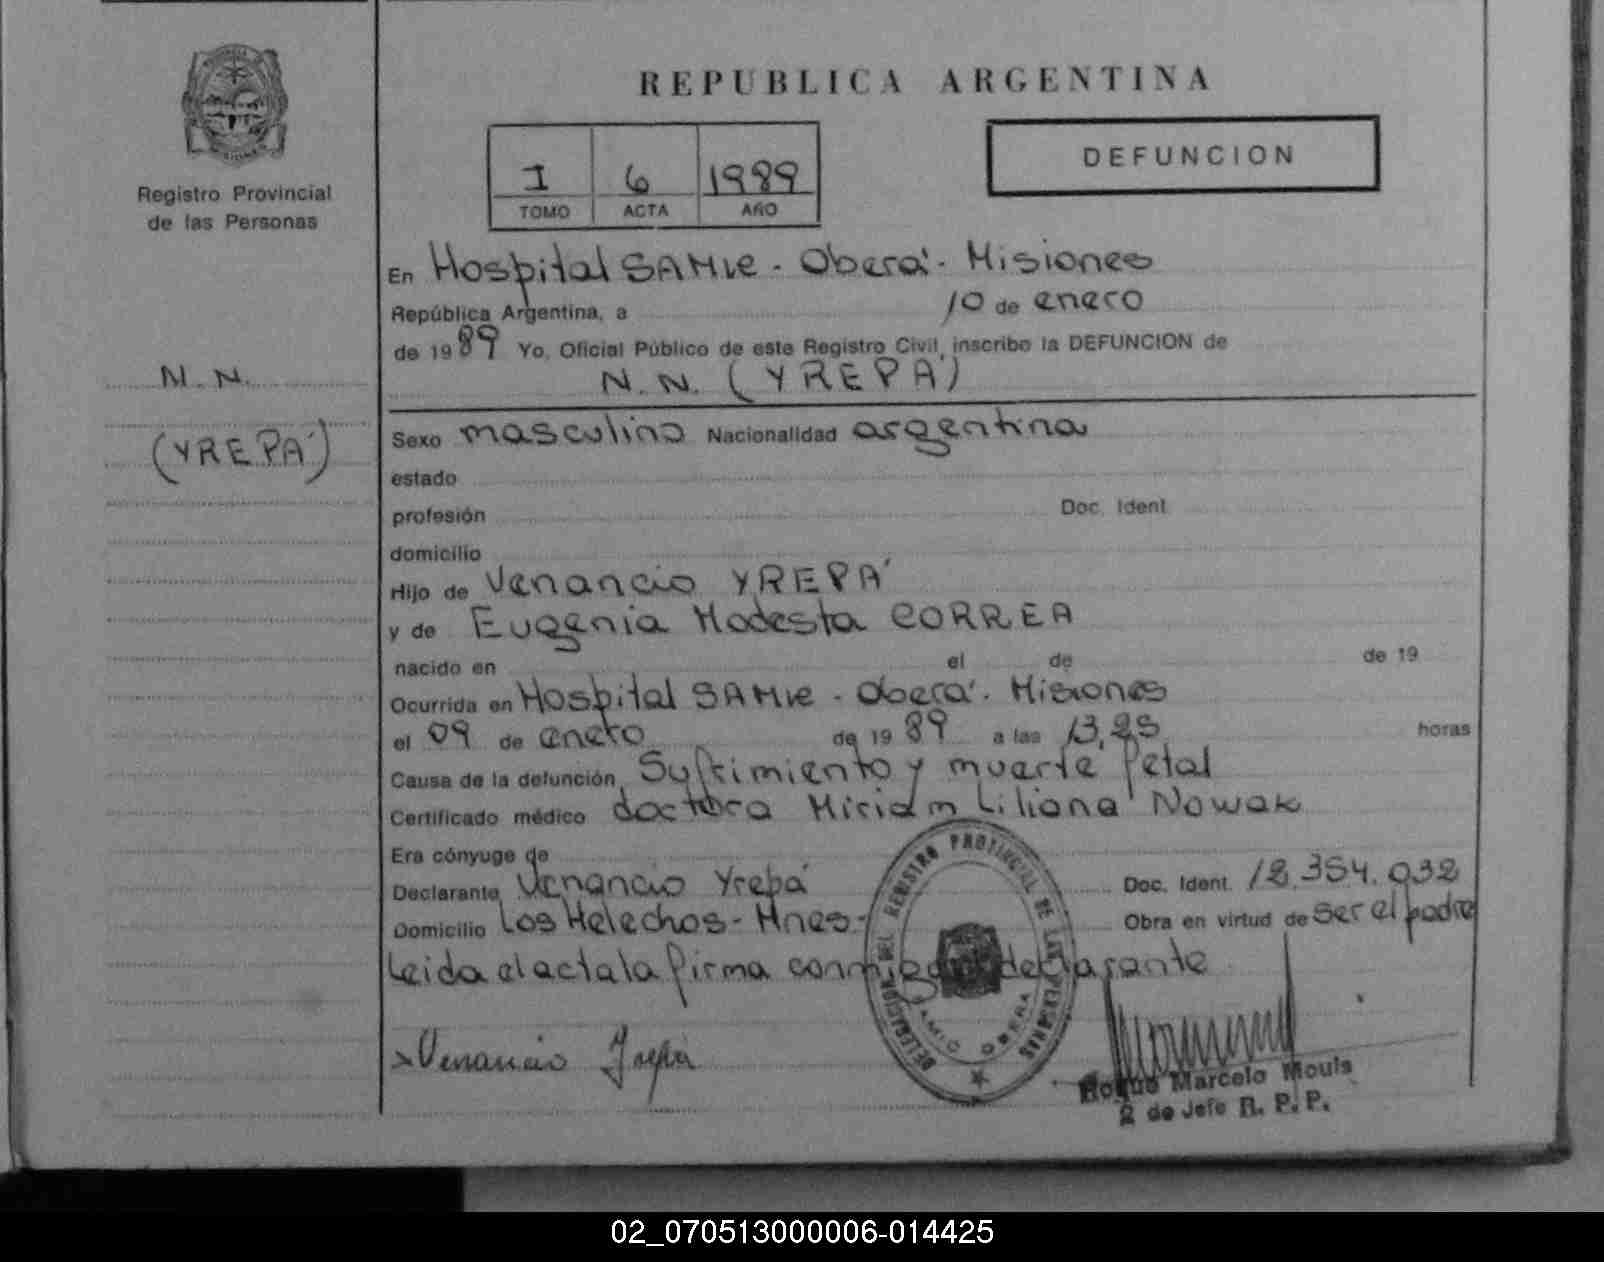 REPUBLICA ARGENTINA
Registro Provincial
de las Personas
I 6 1989
TOMO ACTA AÑO
DEFUNCION
N. N.
(YREPÁ)
En Hospital SAMIC - Oberá - Misiones
República Argentina, a 10 de enero
de 1989 Yo, Oficial Público de este Registro Civil, inscribo la DEFUNCION de
N. N. (YREPÁ)
Sexo masculino Nacionalidad argentina
estado
profesión Doc. Ident.
domicilio
Hijo de Venancio YREPÁ
y de Eugenia Modesta CORREA
nacido en el de de 19
Ocurrida en Hospital SAMIC - Oberá - Misiones
el 09 de enero de 1989 a las 13,25 horas
Causa de la defunción Sufrimiento y muerte fetal
Certificado médico doctora Miriam Liliana Nowak
Era cónyuge de
Declarante Venancio Yrepá Doc. Ident. 12.354.032
Domicilio Los Helechos - Mnes - Obra en virtud de ser el padre
Leida el acta la firma conmigo el declarante
DELEGACION DEL REGISTRO PROVINCIAL DE LAS PERSONAS
SAMIC OBERA
x Venancio Yrepá
Roque Marcelo Mouls
2 de Jefe R. P. P.
02_070513000006-014425